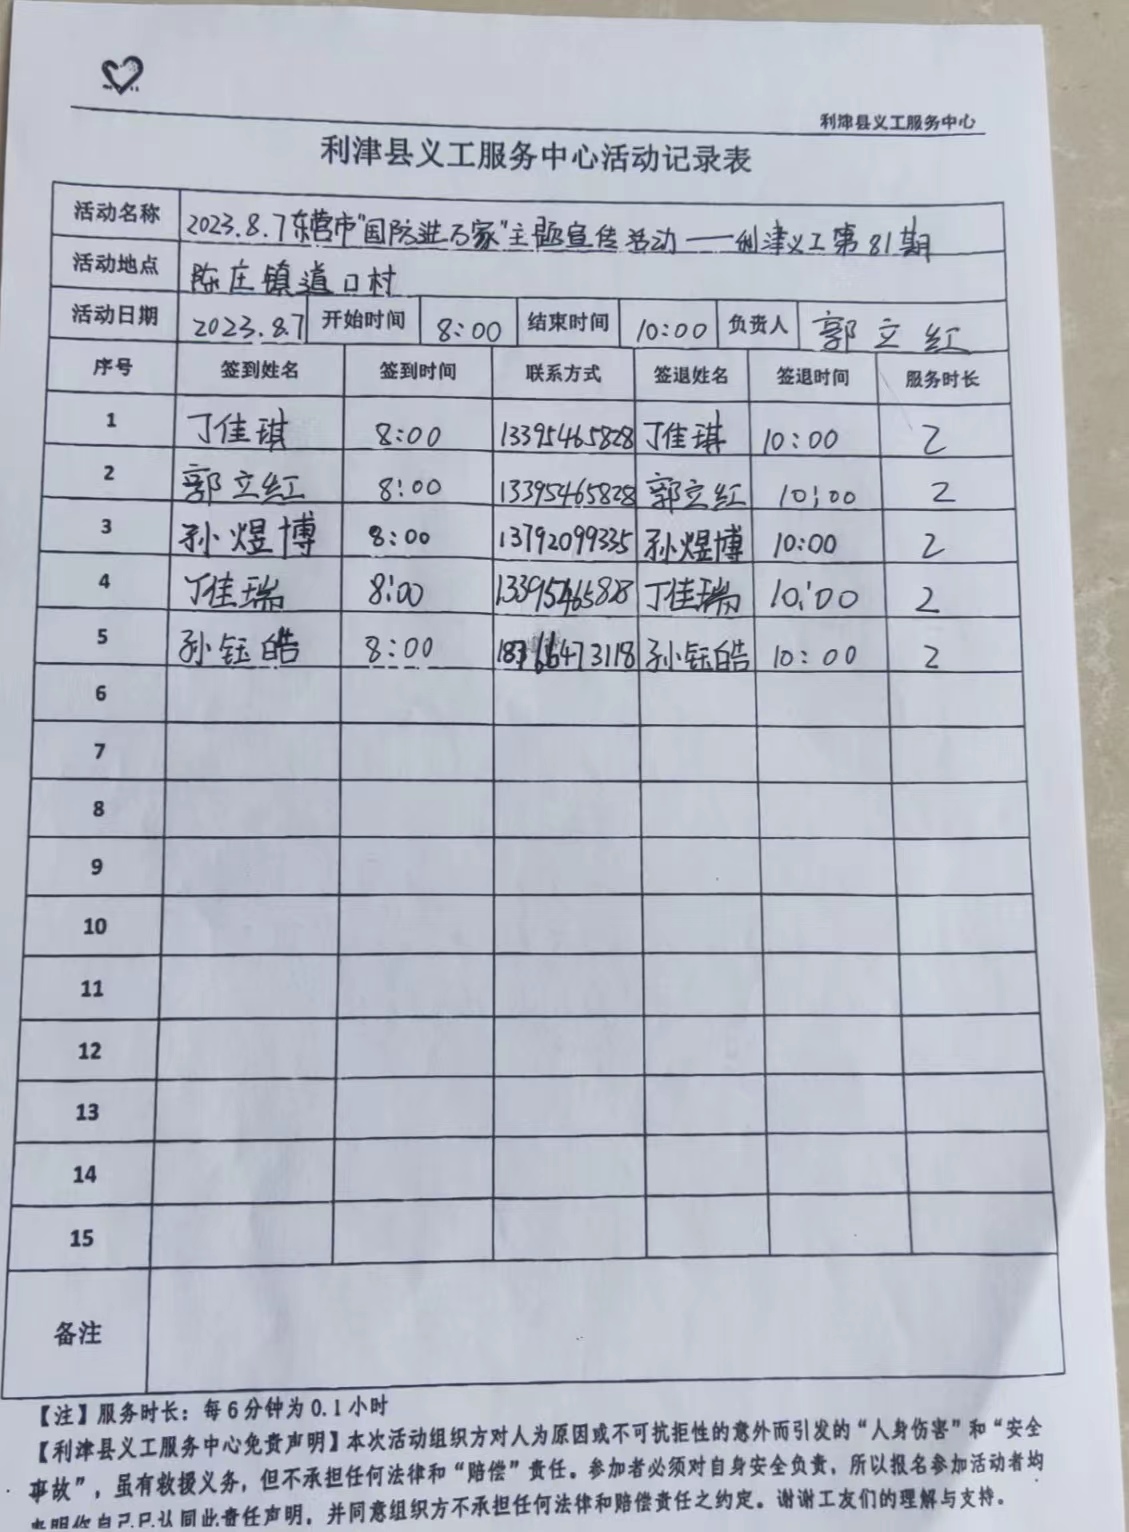 利津县义工服务中心
利津县义工服务中心活动记录表
活动名称 2023.8.7东营市"国防进万家"主题宣传活动——利津义工第81期
活动地点 陈庄镇道口村
活动日期 2023.8.7 开始时间 8:00 结束时间 10:00 负责人 郭立红
序号 签到姓名 签到时间 联系方式 签退姓名 签退时间 服务时长
1 丁佳琪 8:00 13395465828 丁佳琪 10:00 2
2 郭立红 8:00 13395465828 郭立红 10:00 2
3 孙煜博 8:00 13792099335 孙煜博 10:00 2
4 丁佳瑞 8:00 13395465828 丁佳瑞 10:00 2
5 孙钰皓 8:00 孙钰皓 10:00 2
6
7
8
9
10
11
12
13
14
15
备注
【注】服务时长：每6分钟为0.1小时
【利津县义工服务中心免责声明】本次活动组织方对人为原因或不可抗拒性的意外而引发的“人身伤害”和“安全
事故”，虽有救援义务，但不承担任何法律和“赔偿”责任。参加者必须对自身安全负责，所以报名参加活动者均
表明你自己已认同此责任声明，并同意组织方不承担任何法律和赔偿责任之约定。谢谢工友们的理解与支持。